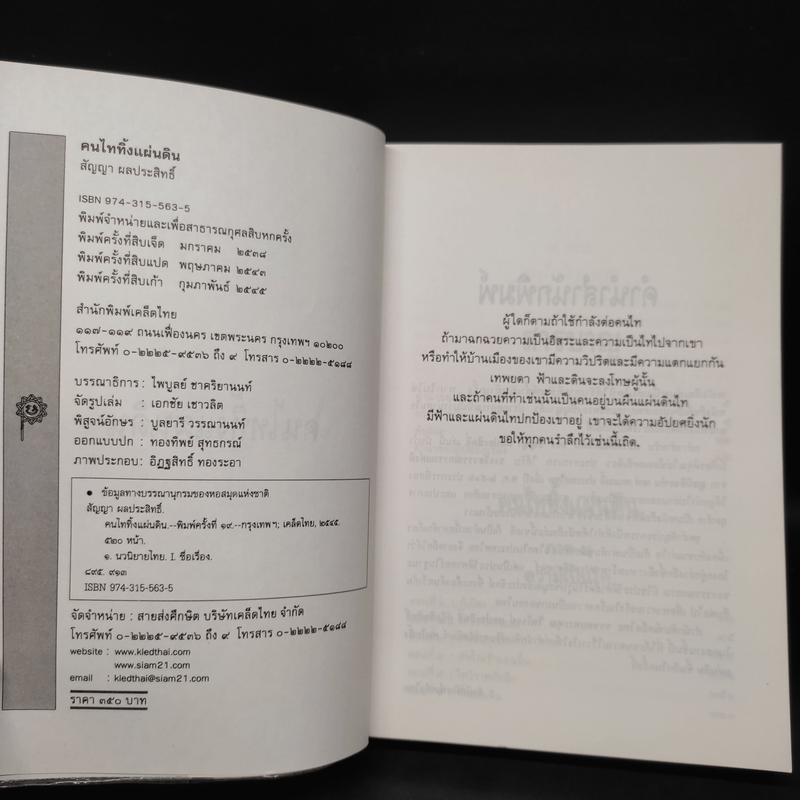 คนไททิ้งแผ่นดิน
สัญญา ผลประสิทธิ์
ISBN 974-315-563-5
พิมพ์จำหน่ายและเพื่อสาธารณกุศลสิบหกครั้ง
พิมพ์ครั้งที่สิบเจ็ด มกราคม ๒๕๓๘
พิมพ์ครั้งที่สิบแปด พฤษภาคม ๒๕๔๓
พิมพ์ครั้งที่สิบเก้า กุมภาพันธ์ ๒๕๔๕
สำนักพิมพ์เคล็ดไทย
๑๑๗-๑๑๙ ถนนเฟื่องนคร เขตพระนคร กรุงเทพฯ ๑๐๒๐๐
โทรศัพท์ ๐-๒๒๒๕-๙๕๓๖ ถึง ๙ โทรสาร ๐-๒๒๒๒-๕๑๘๘
บรรณาธิการ : ไพบูลย์ ชาคริยานนท์
จัดรูปเล่ม : เอกชัย เชาวลิต
พิสูจน์อักษร : บูลยารี วรรณานนท์
ออกแบบปก : ทองทิพย์ สุทธกรณ์
ภาพประกอบ: อิฏฐสิทธิ์ ทองระอา
• ข้อมูลทางบรรณานุกรมของหอสมุดแห่งชาติ
สัญญา ผลประสิทธิ์.
คนไททิ้งแผ่นดิน.--พิมพ์ครั้งที่ ๑๙.--กรุงเทพฯ; เคล็ดไทย, ๒๕๔๕.
๕๒๐ หน้า.
๑. นวนิยายไทย. I. ชื่อเรื่อง.
๘๙๕. ๙๑๓
ISBN 974-315-563-5
จัดจำหน่าย : สายส่งศึกษิต บริษัทเคล็ดไทย จำกัด
โทรศัพท์ ๐-๒๒๒๕-๙๕๓๖ ถึง ๙ โทรสาร ๐-๒๒๒๒-๕๑๘๘
website : www.kledthai.com
www.siam21.com
email : kledthai@siam21.com
ราคา ๓๕๐ บาท
ผู้ใดก็ตามถ้าใช้กำลังต่อคนไท
ถ้ามาฉกฉวยความเป็นอิสระและความเป็นไทไปจากเขา
หรือทำให้บ้านเมืองของเขามีความวิปริตและมีความแตกแยกกัน
เทพยดา ฟ้าและดินจะลงโทษผู้นั้น
และถ้าคนที่ทำเช่นนั้นเป็นคนอยู่บนผืนแผ่นดินไท
มีฟ้าและแผ่นดินไทปกป้องเขาอยู่ เขาจะได้ความอัปยศยิ่งนัก
ขอให้ทุกคนรำลึกไว้เช่นนี้เถิด.